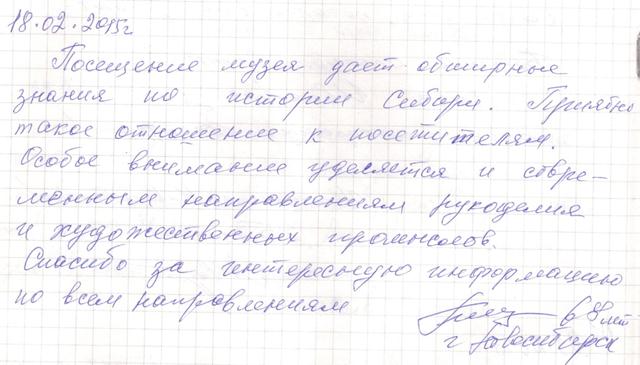 18.02.2015г
Посещение музея дает обширные
знания по истории Сибири. Приятно
такое отношение к посетителям.
Особое внимание уделяется и совре-
менным направлениям рукоделия
и художественных промыслов.
Спасибо за интересную информацию
по всем направлениям
68 лет
г Новосибирск